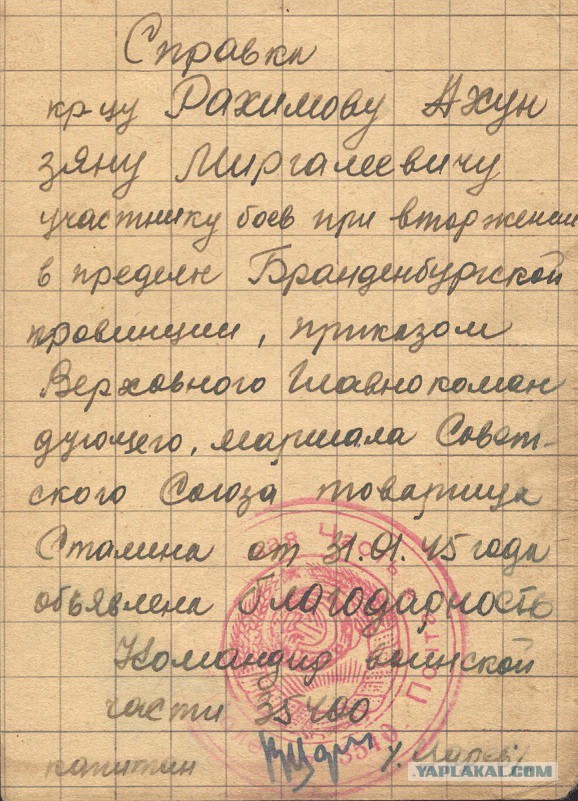 Справка
кр-цу Рахимову Ахун
зяну Миргалеевичу
участнику боев при вторжении
в пределы Бранденбургской
провинции, приказом
Верховного Главнокоман
дующего, маршала Совет-
ского Союза товарища
Сталина от 31.01.45 года
объявлена Благодарность
Командир воинской
части 35400
капитан
YAPLAKAL.COM